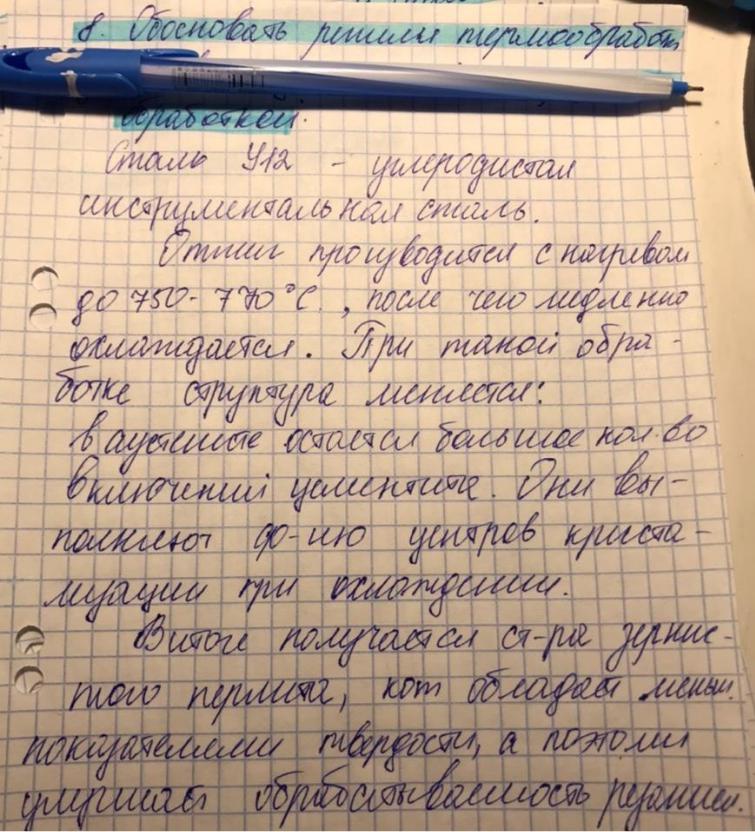 8. Обосновать режимы термообработки
обработкой.
Сталь У12 - углеродистая
инструментальная сталь.
Отжиг производится с нагревом
до 750-770°С., после чего медленно
охлаждается. При такой обра-
ботке структура меняется:
в аустените остается большое кол-во
включений цементита. Они вы-
полняют ф-ию центров криста-
лизации при охлаждении.
В итоге получается ст-ра зернис-
того перлита, кот обладает меньш.
показателями твердости, а поэтому
улучшает обрабатываемость резанием.